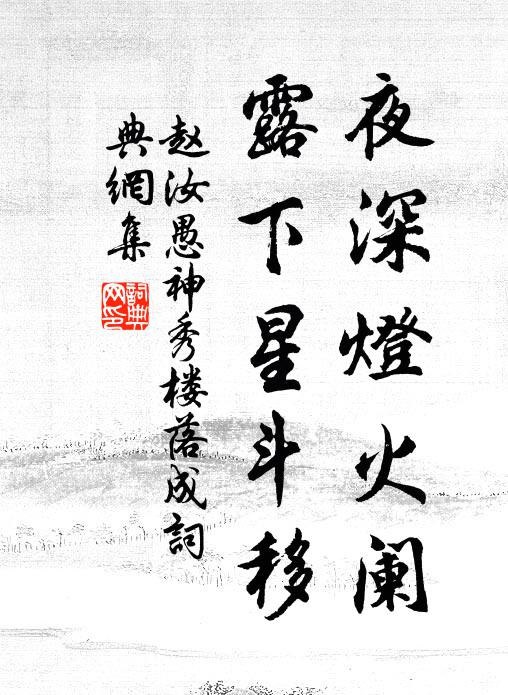 夜深燈火阑
露下星斗移
赵汝愚神秀楼落成詞
典網集
詞典
网印